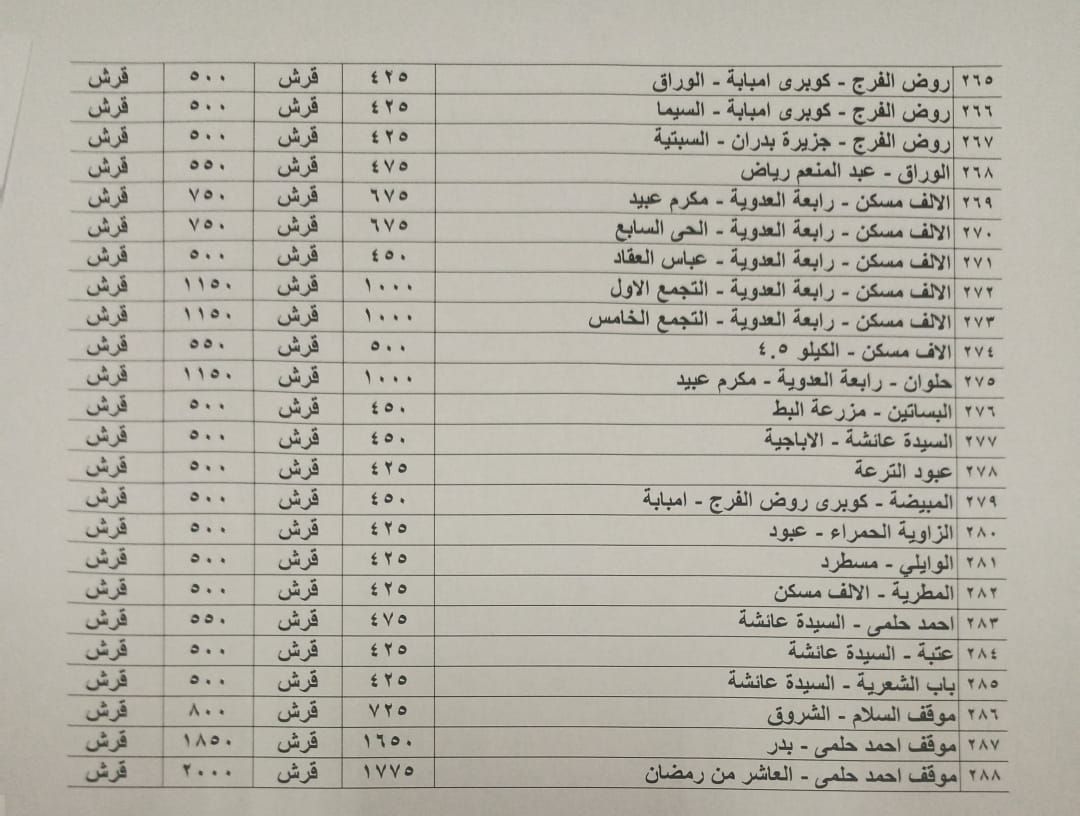 ٢٦٥ روض الفرج - كوبرى امبابة - الوراق ٤٢٥ قرش ٥٠٠ قرش
٢٦٦ روض الفرج - كوبرى امبابة - السيما ٤٢٥ قرش ٥٠٠ قرش
٢٦٧ روض الفرج - جزيرة بدران - السبتية ٤٢٥ قرش ٥٠٠ قرش
٢٦٨ الوراق - عبد المنعم رياض ٤٧٥ قرش ٥٥٠ قرش
٢٦٩ الالف مسكن - رابعة العدوية - مكرم عبيد ٦٧٥ قرش ٧٥٠ قرش
٢٧٠ الالف مسكن - رابعة العدوية - الحى السابع ٦٧٥ قرش ٧٥٠ قرش
٢٧١ الالف مسكن - رابعة العدوية - عباس العقاد ٤٥٠ قرش ٥٠٠ قرش
٢٧٢ الالف مسكن - رابعة العدوية - التجمع الاول ١٠٠٠ قرش ١١٥٠ قرش
٢٧٣ الالف مسكن - رابعة العدوية - التجمع الخامس ١٠٠٠ قرش ١١٥٠ قرش
٢٧٤ الاف مسكن - الكيلو ٤.٥ ٥٠٠ قرش ٥٥٠ قرش
٢٧٥ حلوان - رابعة العدوية - مكرم عبيد ١٠٠٠ قرش ١١٥٠ قرش
٢٧٦ البساتين - مزرعة البط ٤٥٠ قرش ٥٠٠ قرش
٢٧٧ السيدة عائشة - الاباجية ٤٥٠ قرش ٥٠٠ قرش
٢٧٨ عبود الترعة ٤٢٥ قرش ٥٠٠ قرش
٢٧٩ المبيضة - كوبرى روض الفرج - امبابة ٤٥٠ قرش ٥٠٠ قرش
٢٨٠ الزاوية الحمراء - عبود ٤٢٥ قرش ٥٠٠ قرش
٢٨١ الوايلي - مسطرد ٤٢٥ قرش ٥٠٠ قرش
٢٨٢ المطرية - الالف مسكن ٤٢٥ قرش ٥٠٠ قرش
٢٨٣ احمد حلمى - السيدة عائشة ٤٧٥ قرش ٥٥٠ قرش
٢٨٤ عتبة - السيدة عائشة ٤٢٥ قرش ٥٠٠ قرش
٢٨٥ باب الشعرية - السيدة عائشة ٤٢٥ قرش ٥٠٠ قرش
٢٨٦ موقف السلام - الشروق ٧٢٥ قرش ٨٠٠ قرش
٢٨٧ موقف احمد حلمى - بدر ١٦٥٠ قرش ١٨٥٠ قرش
٢٨٨ موقف احمد حلمى - العاشر من رمضان ١٧٧٥ قرش ٢٠٠٠ قرش